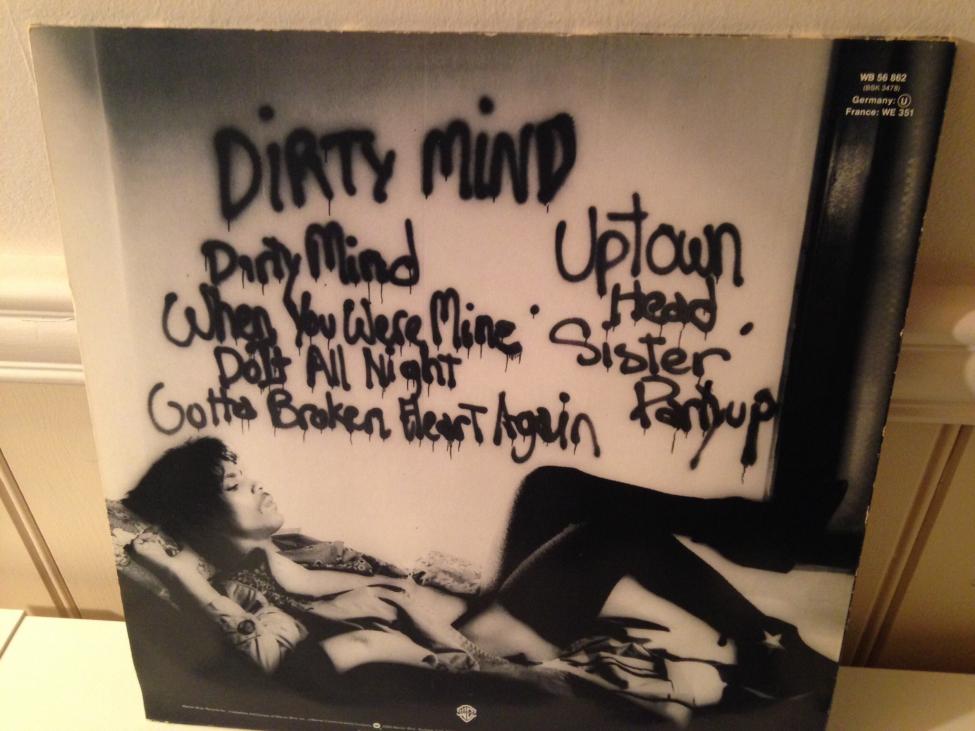 WB 56 862
(BSK 3478)
Germany: U
France: WE 351
DiRTY MiND
Dirty Mind
When You Were Mine
Do It All Night
Gotta Broken Heart Again
Uptown
Head
Sister
Partyup